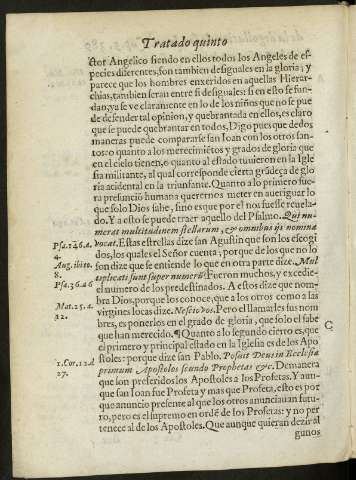 Tratado quinto
ctor Angelico siendo en ellos todos los Angeles de es-
pecies diferentes, son tambien desiguales en la gloria; y
parece que los hombres enxeridos en aquellas Hierar-
chias, tambien seran entre si desiguales: si en esto se fun-
dan, ya se ve claramente en lo de los niños que no se pue
de defender tal opinion, y quebrantada en ellos, es claro
que se puede quebrantar en todos. Digo pues que de dos
maneras puede compararse san Ioan con los otros san-
tos: o quanto a los merecimiẽtos y grados de gloria que
en el cielo tienen, o quanto al estado tuuieron en la Igle
sia militante, al qual corresponde cierta grãdeça de glo
ria acidental en la triunfante. Quanto a lo primero fue-
ra presunciõ humana querernos meter en aueriguar lo
que solo Dios sabe, sino es que por el nos fuesse reuela-
do. Y a esto se puede traer aquello del Psalmo. Qui nu-
merat multitudinem stellarum, & omnibus ijs nomina
Psa. 146. a. 4. vocat. Estas estrellas dize san Agustin que son los escogi
Aug. ibiʀ. dos, los quales el Señor cuenta; porque de los que no lo
8. son dize que se entiende lo que en otra parte dize. Mul
Psa. 36. a 6 tiplicati sunt super numerũ. Fueron muchos, y excedie-
el numero de los predestinados. A estos dize que nom-
bra Dios, porque los conoce, que a los otros como a las
Mat. 25. a. virgines locas dize. Nescio vos. Pero el llamarles sus nom
12. bres, es ponerlos en el grado de gloria, que solo el sabe
que han merecido. ¶ Quanto a lo segundo cierto es, que C
el primero y principal estado en la Iglesia es de los Apo
1. Cor. 12. d stoles: porque dize san Pablo. Posuit Deus in Ecclesia
27. primum Apostolos secundo Prophetas &c. De manera
que son preferidos los Apostoles a los Profetas. Y aun-
que san Ioan fue Profeta y mas que Profeta, esto es por
que anuncio presente al que los otros anunciauan futu-
ro, pero es el supremo en ordẽ de los Profetas: y no per
tenece al de los Apostoles. Que aunque quieran dezir al
gunos